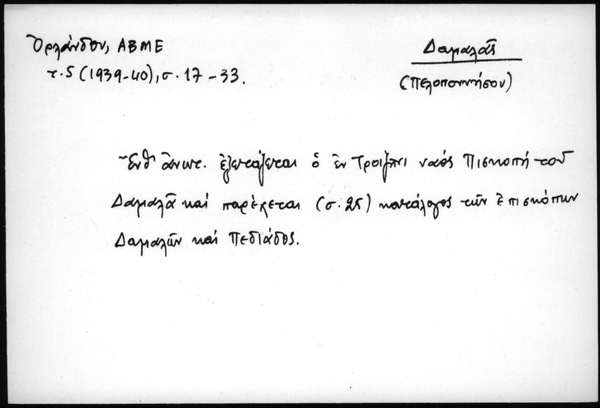 Ὀρλάνδου, ΑΒΜΕ
τ. 5 (1939-40), σ. 17-33.
Δαμαλᾶς
(Πελοποννήσου)
Ἔνθ' ἀνωτ. ἐξετάζεται ὁ ἐν Τροιζῆνι ναός Πισκοπή τοῦ
Δαμαλᾶ καί παρέχεται (σ. 25) κατάλογος τῶν ἐπισκόπων
Δαμαλῶν καί Πεδιάδος.